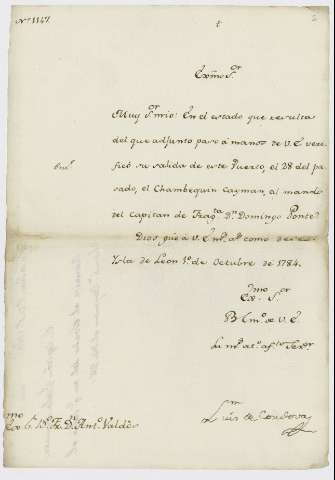 Nº 1147.
Exmo. Sor.
Muy Sor. mio: En el estado que resulta
del que adjunto paso á manos de V. E. veri-
ficó su salida de este Puerto, el 28 del pa-
sado, el Chambequin Cayman, al mando
del Capitan de Fragta. Dn. Domingo Ponte.
Dios gue. á V. E. ms. as. como deseo
Isla de Leon 1º de Octubre de 1784.
Exmo. Sor.
B. l. m. de V. E.
su ms. ato. afto. Servor.
Luis de Cordova
Exmo. Sr. Bo. Fr. Dn. Anto. Valdès